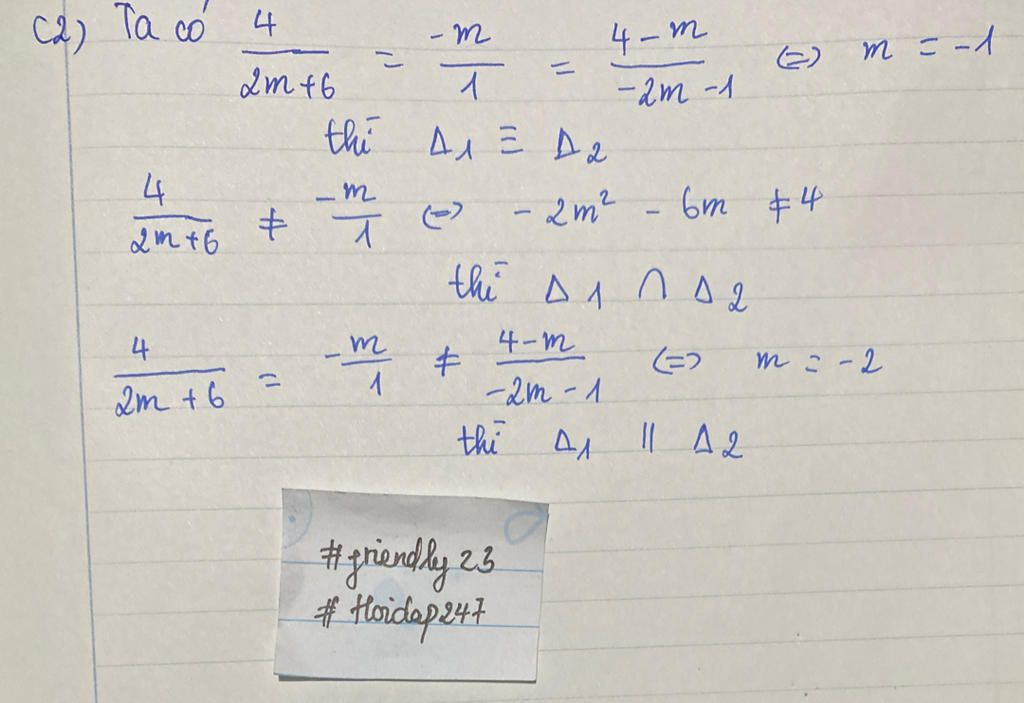 C2) Ta có 4/(2m+6) = -m/1 = (4-m)/(-2m-1) (=) m = -1
thì Δ1 ≡ Δ2
4/(2m+6) ≠ -m/1 (=) -2m² - 6m ≠ 4
thì Δ1 ∩ Δ2
4/(2m+6) = -m/1 ≠ (4-m)/(-2m-1) (=) m = -2
thì Δ1 || Δ2
#friendly23
#Hoidap247